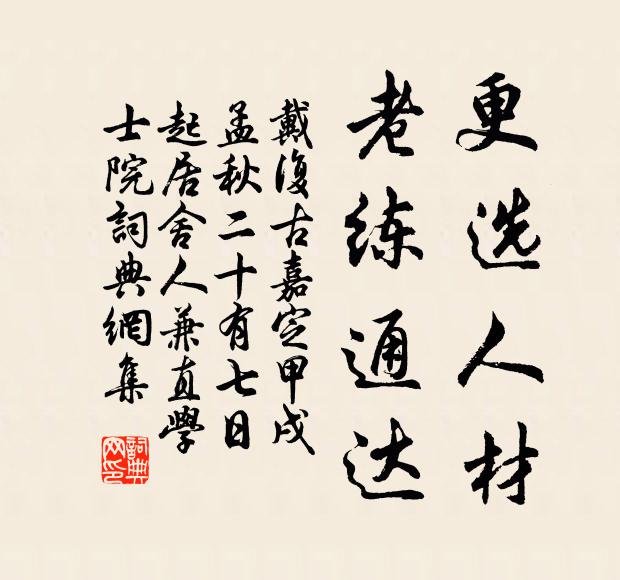 更选人材
老练通达
戴復古嘉定甲戌
孟秋二十有七日
起居舍人兼直學
士院詞典網集
詞典
网印